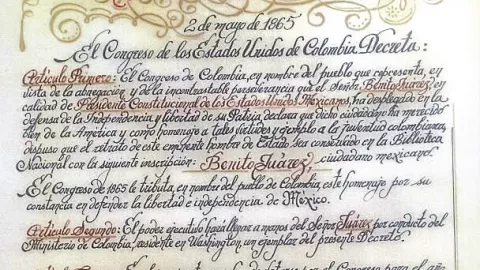 2 de mayo de 1865
El Congreso de los Estados Unidos de Colombia Decreta:
Artículo Primero: El Congreso de Colombia, en nombre del pueblo que representa, en
vista de la abnegación y de la incontrastable perseverancia que el señor Benito Juárez, en
calidad de Presidente Constitucional de los Estados Unidos Mexicanos, ha desplegado en la
defensa de la Independencia y libertad de su Patria, declara que dicho ciudadano ha merecido
bien de la América y como homenaje a tales virtudes y ejemplo a la juventud colombiana,
dispuso que el retrato de este eminente hombre de Estado, sea conservado en la Biblioteca
Nacional con la siguiente inscripción: Benito Juárez, ciudadano mexicano.
El Congreso de 1865 le tributa, en nombre del pueblo de Colombia, este homenaje por su
constancia en defender la libertad e independencia de México.
Artículo Segundo: El poder ejecutivo hará llegar a manos del Señor Juárez, por conducto del
Ministerio de Colombia, residente en Washington, un ejemplar del presente Decreto.